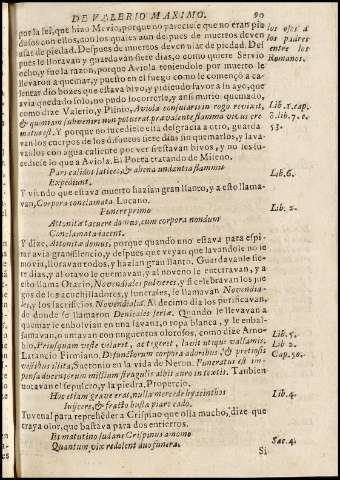 DE VALERIO MAXIMO. 90
por la fee, que hizo Mevio, porque no parecieſe que no eran pia
doſos con ellos, con los quales aun deſpues de muertos deven
uſar de piedad. Deſpues de muertos deven uſar de piedad. Deſ
pues le lloravan y guardavan ſiete dias, o como quiere Servio
ocho, y fue la razon, porque Aviola teniendole por muerto le
llevaron a quemar, y pueſto en el fuego como le començò a ca-
lentar dio bozes que eſtava bivo, y pidiendo favor a ſu ayo, que
avia quedado ſolo, no pudo ſocorrerle, y anſi murio quemado,
como dize Valerio, y Plinio, Aviola conſularis in rogo revixit,
& quoniam ſubveniri non potuerat prævalente flamma vivus cre
matus eſt. Y porque no ſucedieſe eſta deſgracia a otro, guarda
van los cuerpos de los difuntos ſiete dias ſin quemarlos, y lava-
vanlos con agua caliente por ver ſi eſtavan bivos, y no les ſu-
cedieſe lo que a Aviola. El Poeta tratando de Miſeno.
Pars calidos latices, & ahena undantia flammis
Expediunt.
Y viendo que eſtava muerto hazian gran llanto, y a eſto llama-
van, Corpora conclamata. Lucano.
Funere primo
Attonitæ tacuere domus, cum corpora nondum
Conclamata iacent.
Y dize, Attonitæ domus, porque quando uno eſtava para eſpi-
rar avia gran ſilencio, y deſpues que veyan que lavandole no ſe
movia, lloravan todos, y hazian gran llanto. Guardavanle ſie-
te dias, y al otavo le quemavan, y al noveno le enterravan, y a
eſto llama Oracio, Novendiales pulveres, y ſi celebravan los jue
gos de los acuchilladores, y funerales, ſe llamavan Novendia-
les, y los ſacrificios Novendialia. Al decimo dia los purificavan,
de donde ſe llamaron Denicales feriæ. Quando le llevavan a
quemar le enbolvian en una ſavana, o ropa blanca, y le enbal-
ſamavan, o untavan con unguentos oloroſos, como dize Arno-
Latancio Firmiano. Defunctorum corpora adoribus, & pretioſis
veſtibus Suetonio en la vida de Neron. Funeratus eſt im-
penſa ducentorum millium ſtragulis albis auro intextis. Tanbien
rociavan el ſepulcro, y la piedra, Propercio.
Hoc etiam grave erat, nulla mercede hyacinthos
Injicere, & fracto buſta piare cado.
Iuvenal para reprehēder a Criſpino que olia mucho, dize que
traya olor, que baſtava para dos entierros.
Et matutino ſudans Criſpinus amomo
Quantum vix redolent duo funera.
Si
los oſes à
los padres
entre los
Romanos.
Lib. 1. cap.
8. lib. 7. c.
53.
Lib. 6.
Lib. 2.
Lib. 5.
Lib. 2.
Cap. 50.
Lib. 4.
Sat. 4.